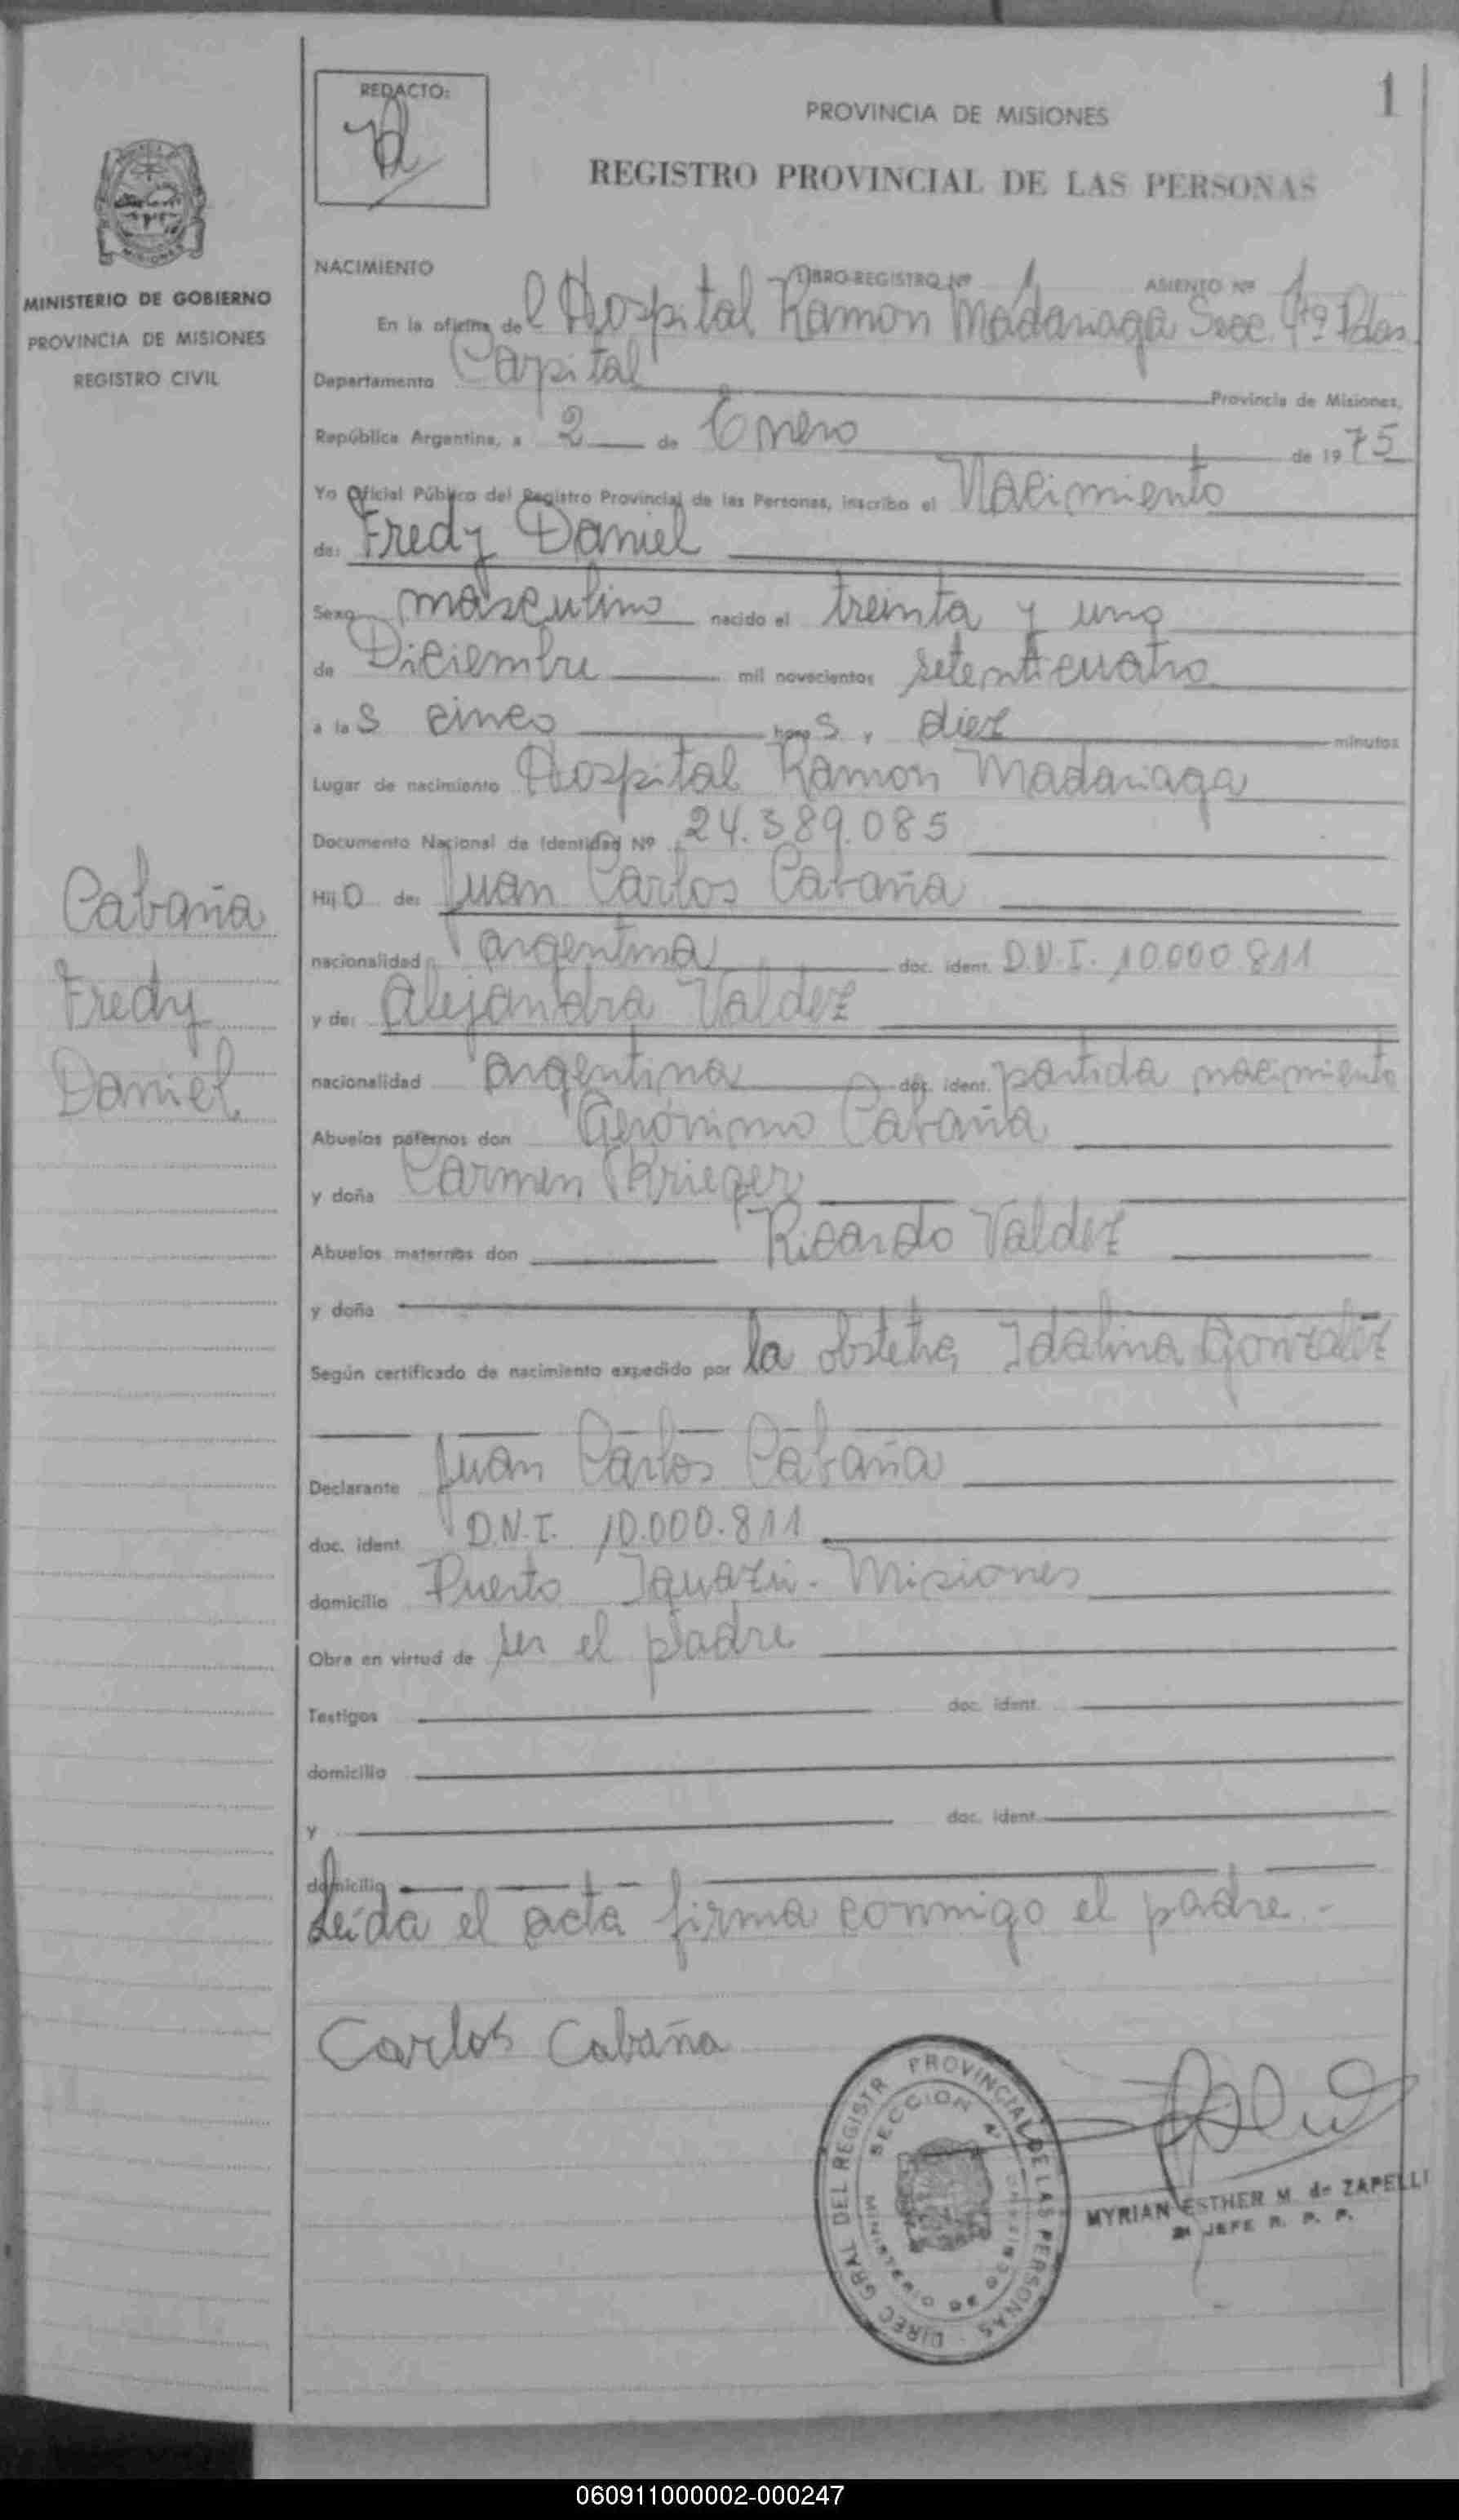 1
REDACTO:
PROVINCIA DE MISIONES
REGISTRO PROVINCIAL DE LAS PERSONAS
MISIONES
MINISTERIO DE GOBIERNO
PROVINCIA DE MISIONES
REGISTRO CIVIL
NACIMIENTO LIBRO-REGISTRO Nº 1 ASIENTO Nº 1
En la oficina del Hospital Ramon Madariaga Secc. 4ta Pdas.
Departamento Capital Provincia de Misiones,
República Argentina, a 2 de Enero de 1975
Yo Oficial Público del Registro Provincial de las Personas, inscribo el Nacimiento
de: Fredy Daniel
Sexo masculino nacido el treinta y uno
de Diciembre mil novecientos setenticuatro
a las cinco horas y diez minutos
Lugar de nacimiento Hospital Ramon Madariaga
Documento Nacional de Identidad Nº 24.389.085
Hijo de: Juan Carlos Cabaña
nacionalidad argentina doc. ident. D.N.I. 10.000.811
y de: Alejandra Valdez
nacionalidad argentina doc. ident. partida nacimiento
Abuelos paternos don Gerónimo Cabaña
y doña Carmen Krieger
Abuelos maternos don Ricardo Valdez
y doña
Según certificado de nacimiento expedido por la obstetra Idalina Gonzalez
Declarante Juan Carlos Cabaña
doc. ident. D.N.I. 10.000.811
domicilio Puerto Iguazú. Misiones
Obra en virtud de ser el padre
Testigos doc. ident.
domicilio
y doc. ident.
domicilio
Leída el acta firma conmigo el padre.-
Cabaña
Fredy
Daniel
Carlos Cabaña
DIREC GRAL DEL REGISTR PROVINCIAL DE LAS PERSONAS
SECCION 4
MINISTERIO DE GOBIERNO
MYRIAN ESTHER M. de ZAPELLI
JEFE R. P. P.
060911000002-000247